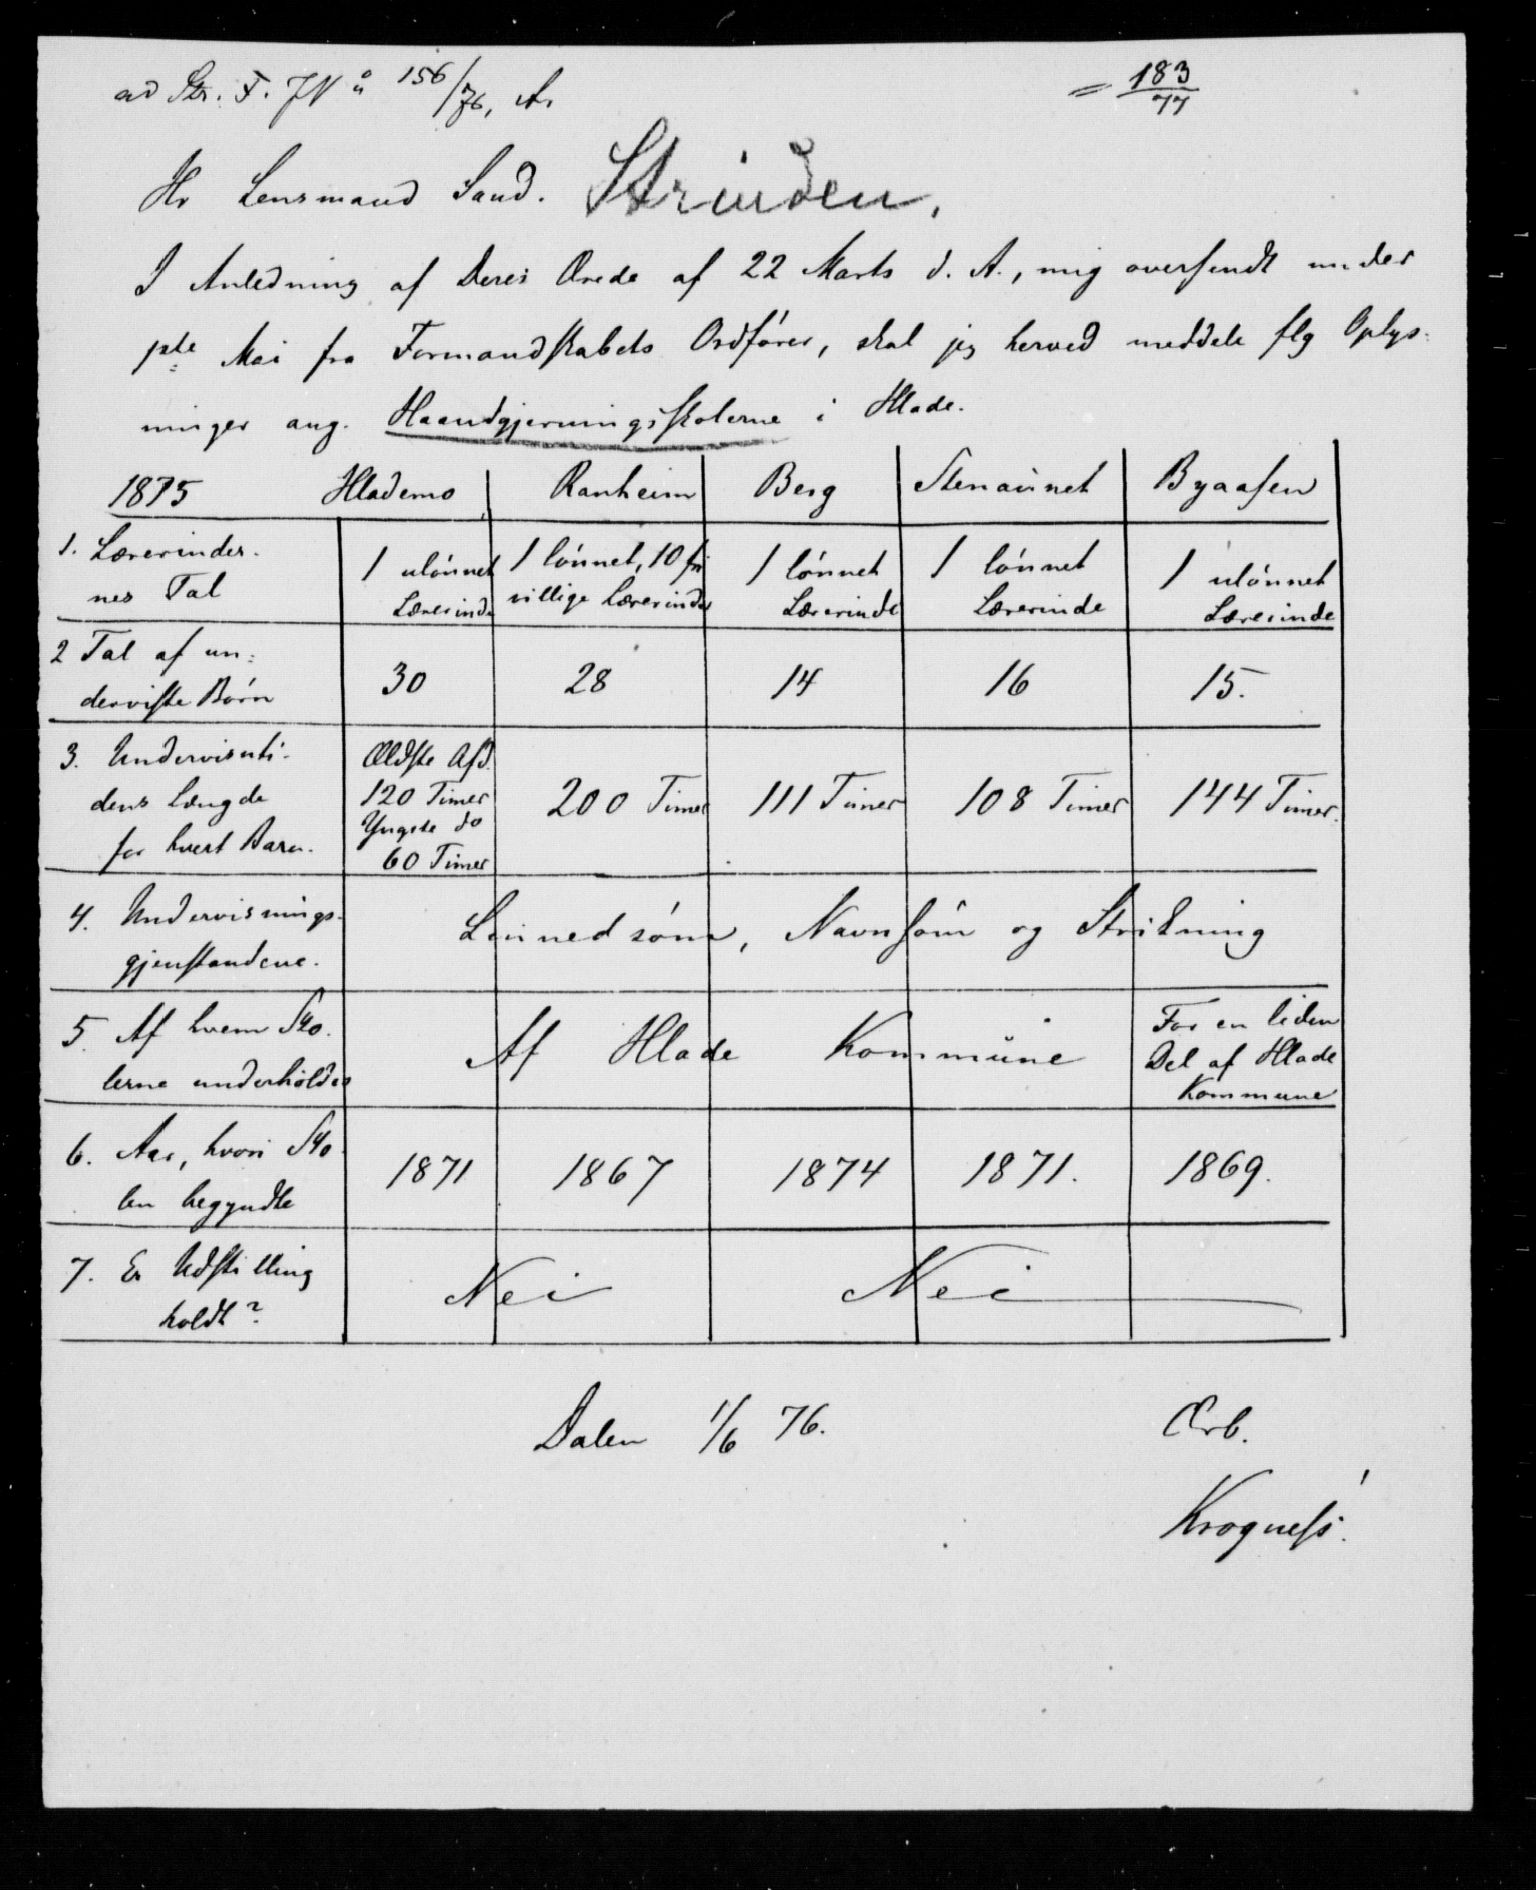 ad Str. F. JN° 156/76, A.
= 183/77
Hr Lensmand Sand. Strinden.
I Anledning af Deres Ærede af 22 Marts d. A., mig oversendt under
1ste Mai fra Formandskabets Ordfører, skal jeg herved meddele flg Oplys-
ninger ang. Haandgjerningsskolerne i Hlade.
1875 Hlademo Ranheim Berg Stenaunet Byaasen
1. Lærerinder-
nes Tal
1 ulønnet
Lærerinde
1 lønnet, 10 fri
villige Lærerinder
1 lønnet
Lærerinde
1 lønnet
Lærerinde
1 ulønnet
Lærerinde
2 Tal af un-
derviste Børn
30 28 14 16 15.
3. Undervisnti-
dens Længde
for hvert Barn.
Ældste Afd.
120 Timer
Yngste do
60 Timer
200 Timer 111 Timer 108 Timer 144 Timer.
4. Undervisnings-
gjenstandene.
Linnedsøm, Navnsøm og Strikning
5. Af hvem Sko-
lerne underholdes
Af Hlade Kommune
For en liden
Del af Hlade
Kommune
6. Aar, hvori Sko-
len begyndte
1871 1867 1874 1871. 1869.
7. Er Udstilling
holdt?
Nei Nei
Dalen 1/6 76. Ærb.
Krogness.